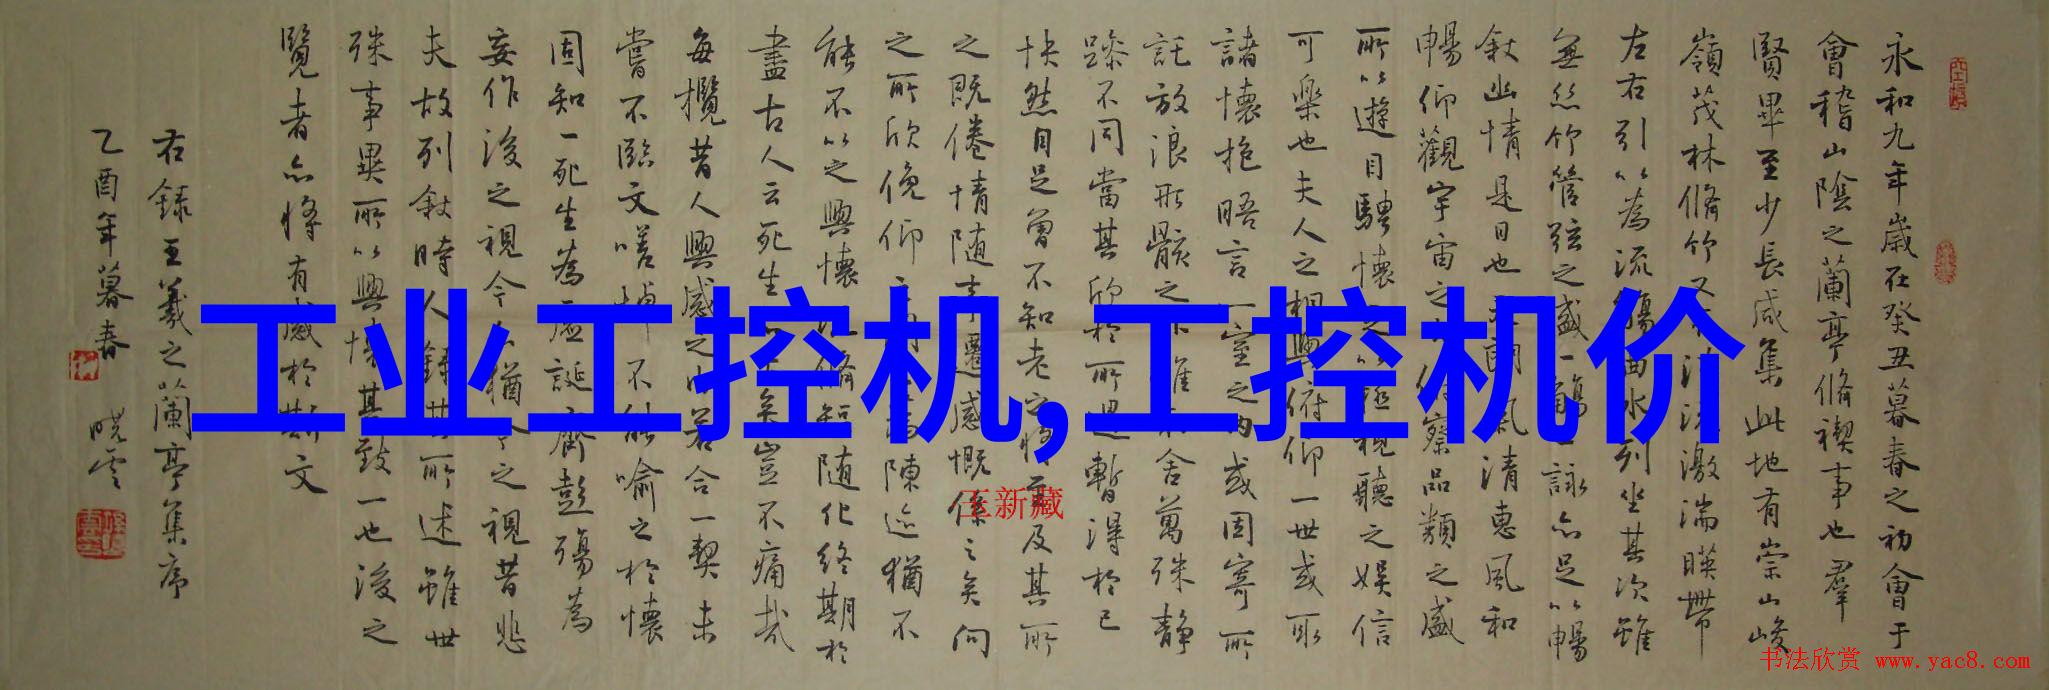 永和九年歲在癸丑暮春之初會于
會稽山陰之蘭亭脩禊事也羣
賢畢至少長咸集此地有崇山峻
嶺茂林脩竹又有清流激湍暎帶
左右引以為流觴曲水列坐其次雖
無絲竹管弦之盛一觴一詠亦足以暢
敘幽情是日也天朗氣清惠風和
暢仰觀宇宙之大俯察品類之盛
所以遊目騁懷足以極視聽之娛信
可樂也夫人之相與俯仰一世或取
諸懷抱晤言一室之內或因寄所
託放浪形骸之外雖趣舍萬殊靜
躁不同當其欣於所遇暫得於己
快然自足曾不知老之將至及其所
之既倦情隨事遷感慨係之矣向
之所欣俛仰之間以為陳迹猶不
能不以之興懷況脩短隨化終期於
盡古人云死生亦大矣豈不痛哉
每攬昔人興感之由若合一契未
嘗不臨文嗟悼不能喻之於懷
固知一死生為虛誕齊彭殤為
妄作後之視今亦猶今之視昔悲
夫故列敘時人錄其所述雖世
殊事異所以興懷其致一也後之
覽者亦將有感於斯文
右錄王羲之蘭亭集序
乙酉年暮春 曉雲
工业工控机,工控机价
王新藏
书法欣赏 www.yac8.com